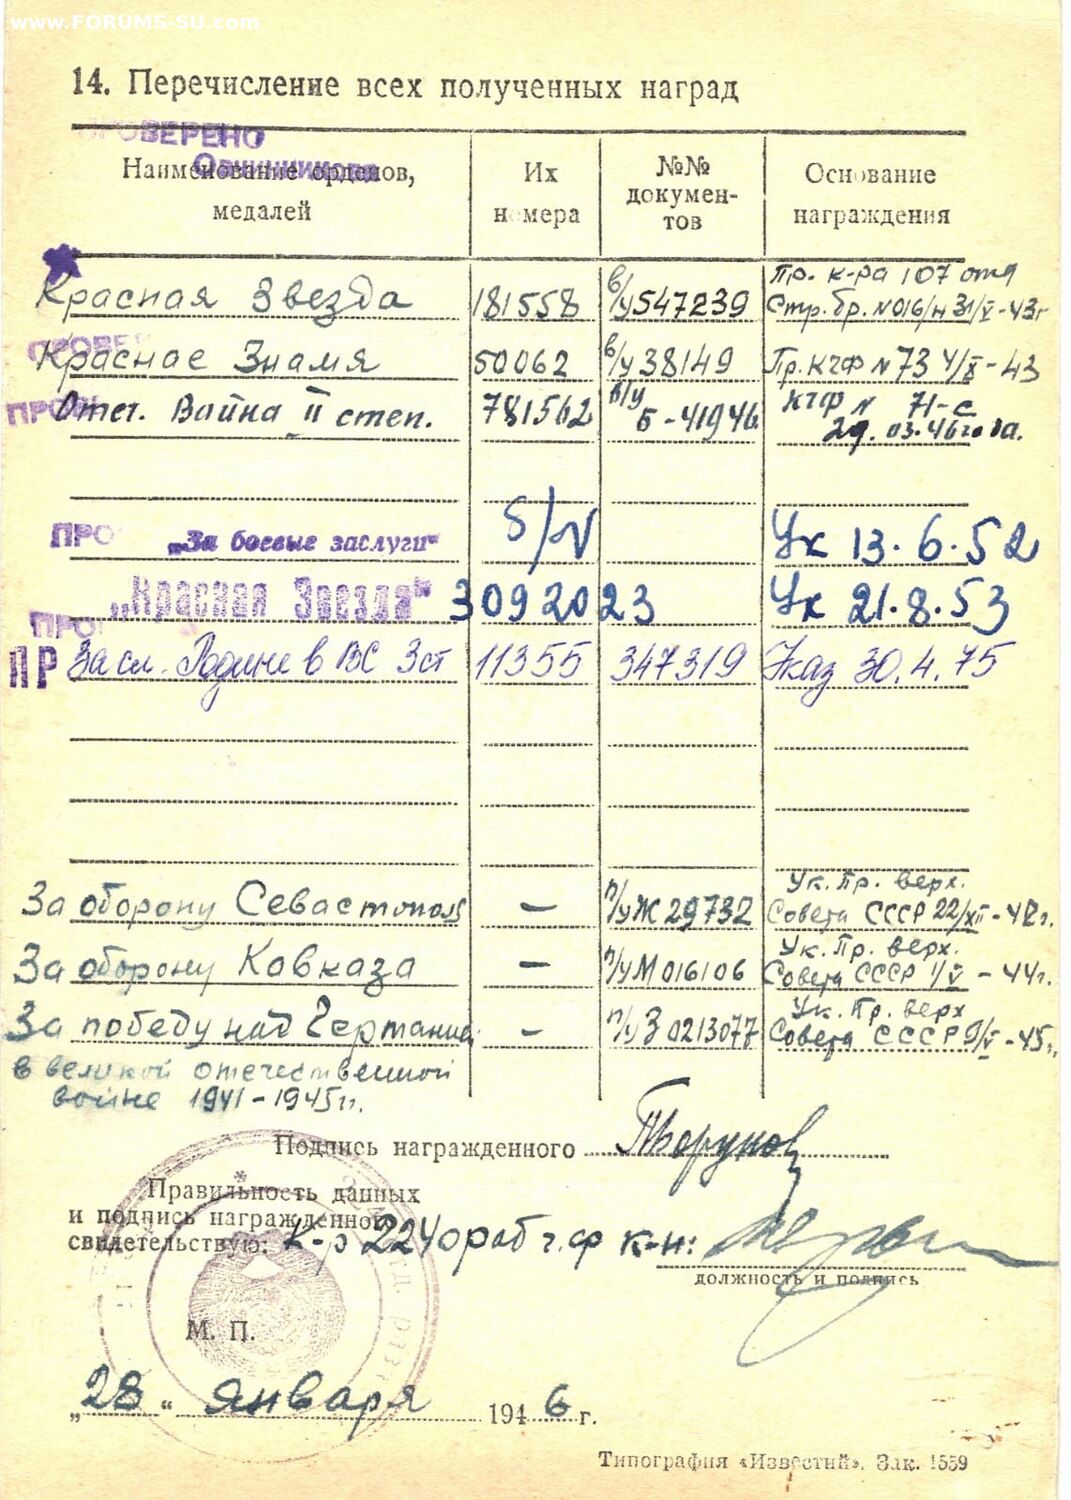 www.FORUMS-SU.com
14. Перечисление всех полученных наград
ПРОВЕРЕНО
Наименование орденов, медалей
Их номера
№№ докумен-тов
Основание награждения
Красная Звезда 181558 в/у 547239 Пр. к-ра 107 отд Стр. бр. №016/н 31/V-43г
ПРОВЕ
Красное Знамя 50062 в/у 38149 Пр. КЧФ №73 4/IX-43
ПРОВ
Отеч. Вайна II степ. 781562 в/у Б-41946 КЧФ № 71-с 29.03.46 года.
ПРО „За боевые заслуги“ б/№ Ук 13.6.52
„Красная Звезда“ 3092023 Ук 21.8.53
ПРО
ПР За сл. Родине в ВС 3 ст 11355 347319 Указ 30.4.75
За оборону Севастополя — п/у Ж 29732 Ук. Пр. верх. Совета СССР 22/XII-42г.
За оборону Кавказа — п/у М 016106 Ук. Пр. верх. Совета СССР 1/V-44г.
За победу над Германией — п/у З 0213077 Ук. Пр. верх Совета СССР 9/V-45г.
в великой отечественной
войне 1941-1945гг.
Подпись награжденного
Правильность данных
и подпись награжденного
свидетельствую: к-р 224 ораб ч.ф к-н:
должность и подпись
М. П.
„28“ января 1946 г.
Типография «Известий». Зак. 1559